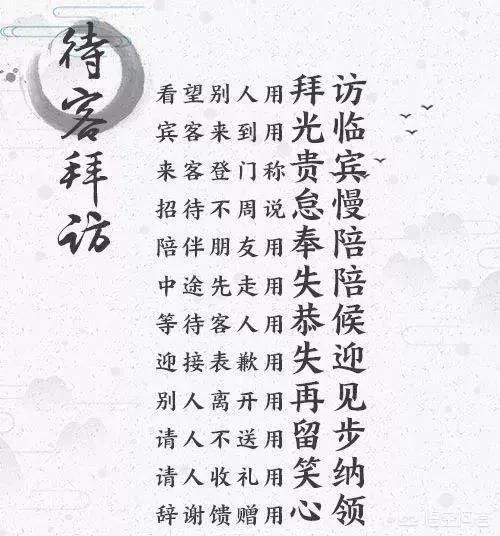 待客拜访
看望别人用拜访
宾客来到用光临
来客登门称贵宾
招待不周说怠慢
陪伴朋友用奉陪
中途先走用失陪
等待客人用恭候
迎接表歉用失迎
别人离开用再见
请人不送用留步
请人收礼用笑纳
辞谢馈赠用心领